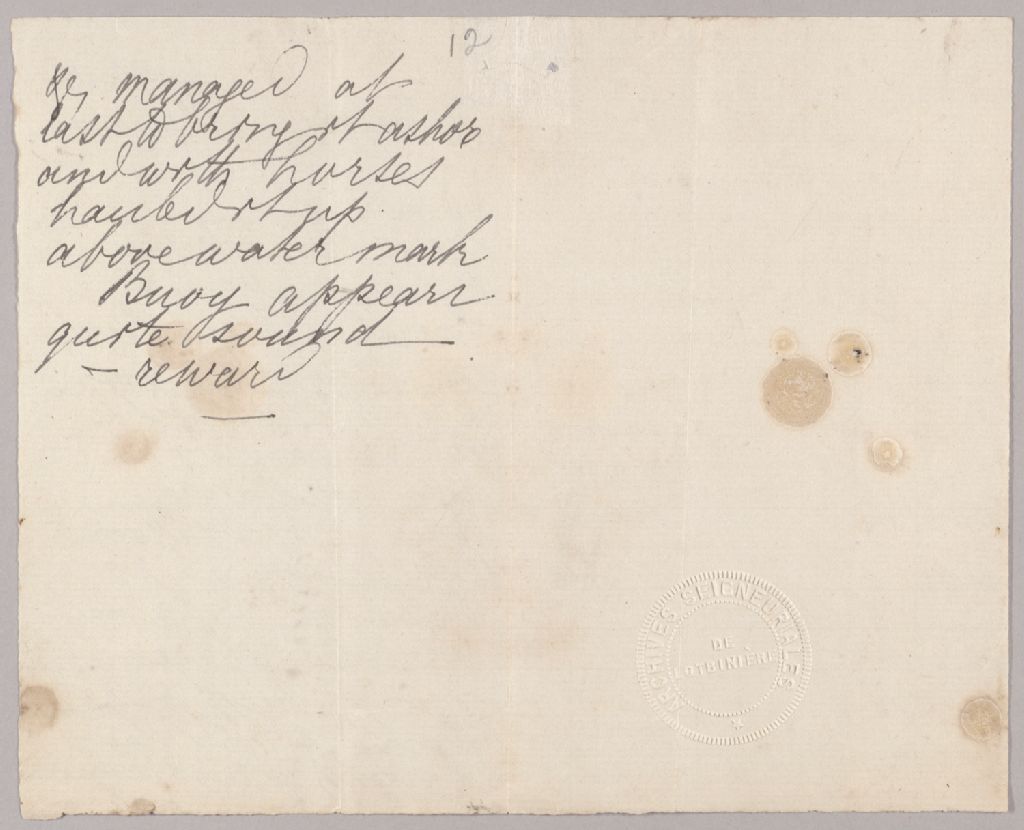 12
& managed at
last to bring it ashore
and with horses
hauled it up
above water mark
Buoy appears
quite sound —
— reward
ARCHIVES SEIGNEURIALES
DE
LOTBINIÈRE